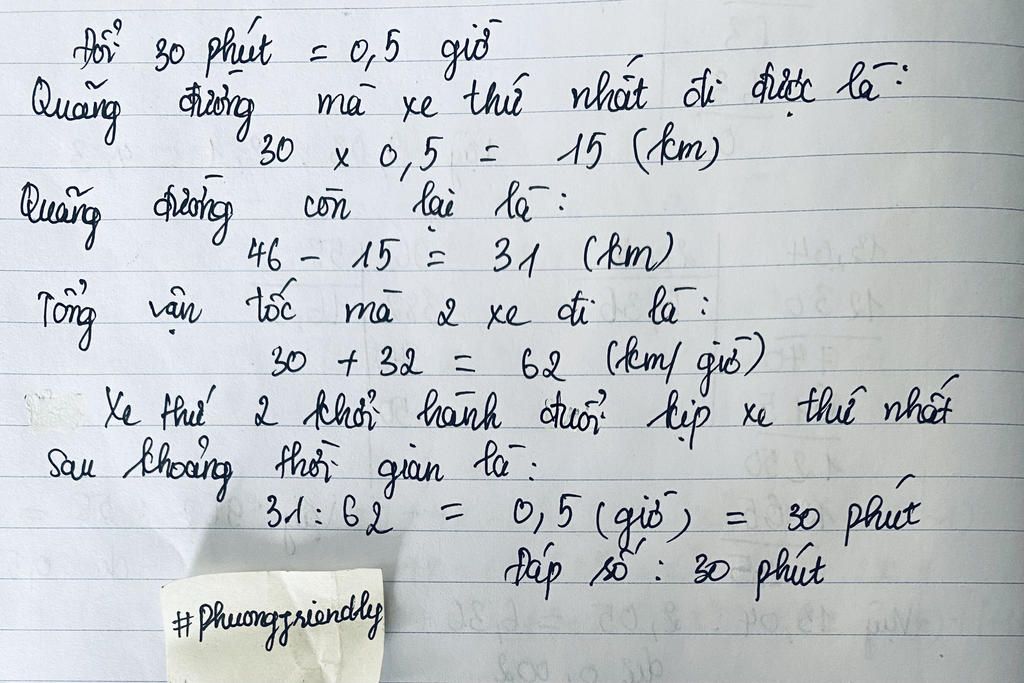 Đổi 30 phút = 0,5 giờ
Quãng đường mà xe thứ nhất đi được là:
30 x 0,5 = 15 (km)
Quãng đường còn lại là:
46 - 15 = 31 (km)
Tổng vận tốc mà 2 xe đi là:
30 + 32 = 62 (km/giờ)
Xe thứ 2 khởi hành đuổi kịp xe thứ nhất
sau khoảng thời gian là:
31 : 62 = 0,5 (giờ) = 30 phút
Đáp số : 30 phút
#phuongfriendly